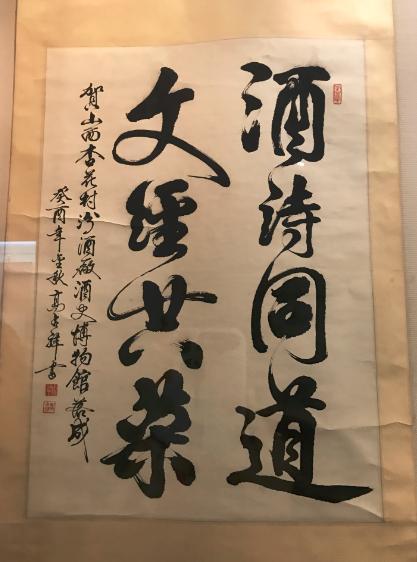 酒诗同道
文經共荣
贺山西杏花村汾酒厰酒史博物館落成
癸酉年金秋高占祥书